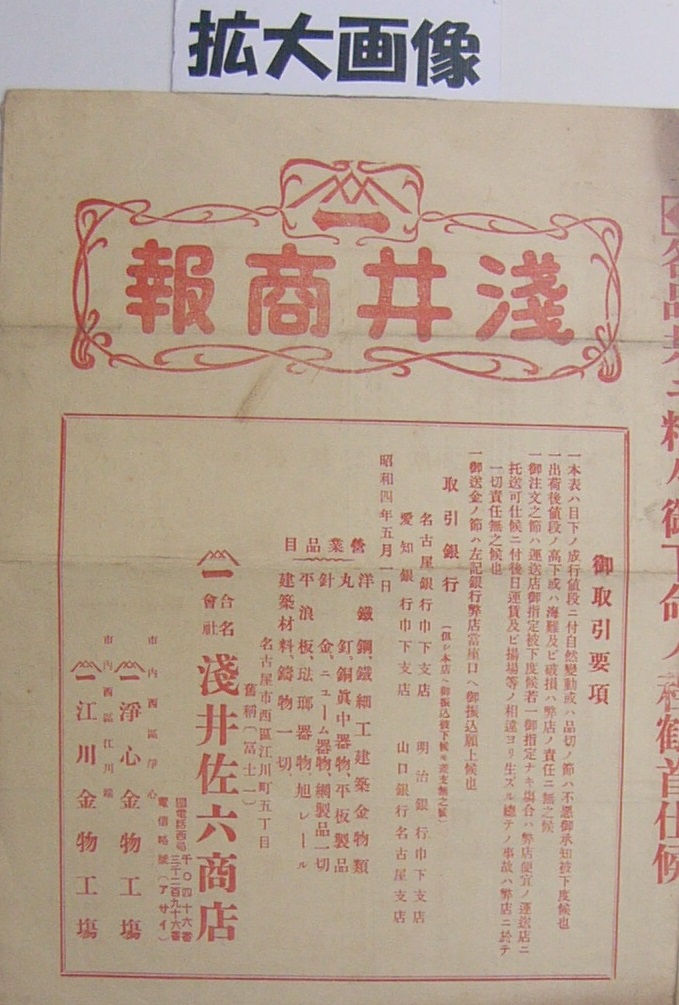 拡大画像
一
淺井商報
御取引要項
一本表ハ目下ノ成行値段ニ付自然變動或ハ品切ノ節ハ不惡御承知被下度候也
一出荷後値段ノ高下或ハ海難及ビ破損ハ弊店ノ責任ニ無之候
一御注文之節ハ運送店御指定被下度候若一御指定ナキ場合ハ弊店便宜ノ運送店ニ
托送可仕候ニ付後日運賃及ビ揚場等ノ相違ヨリ生ズル總テノ事故ハ弊店ニ於テ
一切責任無之候也
一御送金ノ節ハ左記銀行弊店當座口ヘ御振込願上候也
取引銀行
名古屋銀行巾下支店 明治銀行巾下支店
愛知銀行巾下支店 山口銀行名古屋支店
昭和四年五月一日
營業品目
洋鐵鋼、鐵細工建築金物類
丸釘、銅眞中器物、平板製品
針金、ニューム器物、網製品一切
平浪板、琺瑯器物旭レール
建築材料、鑄物一切、
名古屋市西區江川町五丁目
舊稱(冨士一)
一 合名會社 淺井佐六商店
電信略號(アサイ)
市内西區淨心
一淨心金物工塲
市内西區江川端
一江川金物工塲